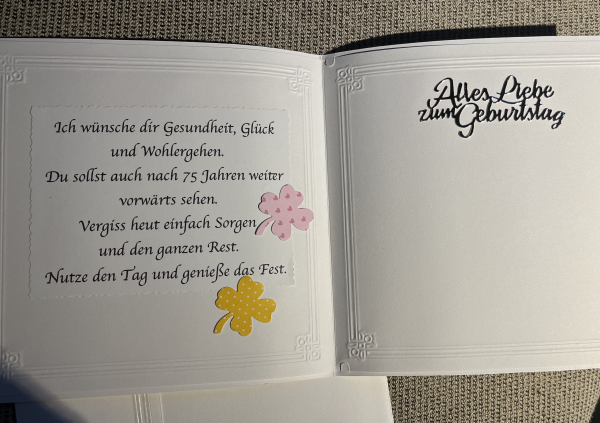 Ich wünsche dir Gesundheit, Glück
und Wohlergehen.
Du sollst auch nach 75 Jahren weiter
vorwärts sehen.
Vergiss heut einfach Sorgen
und den ganzen Rest.
Nutze den Tag und genieße das Fest.
Alles Liebe
zum Geburtstag